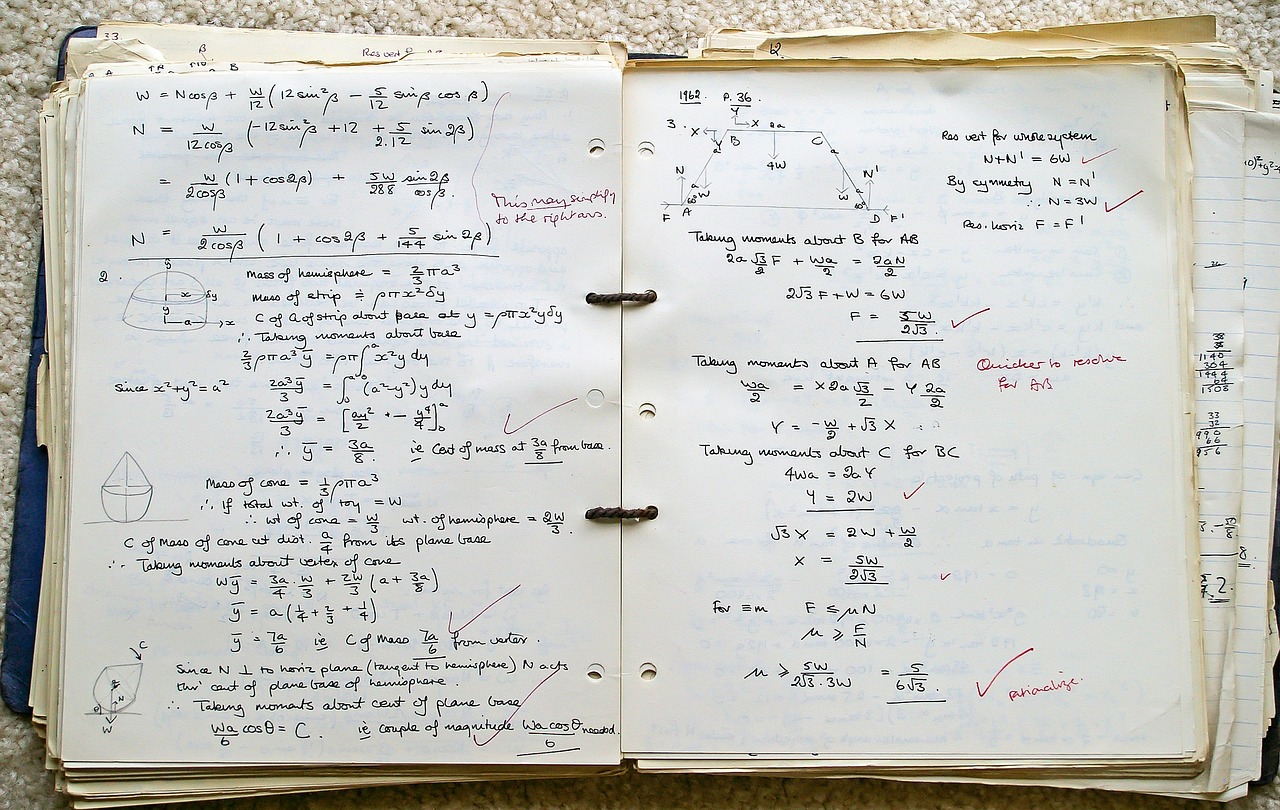 33.
β
Res vert
W = Ncosβ + W/12 (12 sin²β − 5/12 sinβ cosβ)
N = W/12cosβ (−12sin²β + 12 + 5/2.12 sin2β)
= W/2cosβ (1 + cos2β) + 5W/288 sin2β/cosβ.
This may simplify
to the right ans.
N = W/2cosβ (1 + cos2β + 5/144 sin2β)
2.
y
x δy
y
a x
Mass of hemisphere = 2/3 πa³
Mass of strip ≑ ρπx²δy
C of G of strip about base at y = ρπx²yδy
∴ Taking moments about base
2/3 ρπa³ȳ = ρπ∫₀ᵃ x²y dy
Since x²+y²=a² 2a³ȳ/3 = ∫₀ᵃ (a²−y²) y dy
2a³ȳ/3 = [ay²/2 − y⁴/4]₀ᵃ
∴ ȳ = 3a/8 ie Cent of mass at 3a/8 from base.
Mass of cone = 1/3 ρπa³
∴ If total wt. of toy = W
∴ wt of cone = W/3 wt. of hemisphere = 2W/3.
C of Mass of cone at dist. a/4 from its plane base
∴ Taking moments about vertex of cone
Wȳ = 3a/4 · W/3 + 2W/3 (a + 3a/8)
ȳ = a(1/4 + 2/3 + 1/4)
ȳ = 7a/6 ie C of Mass 7a/6 from vertex.
C
N
θ
W
Since N ⊥ to horiz plane (tangent to hemisphere) N acts
thro' cent of plane base of hemisphere.
∴ Taking moments about cent of plane base
Wa/6 cosθ = C. ie couple of magnitude Wa cosθ/6 needed.
12.
1962. P. 36.
3.
Y
X X 2a
Y B C
a 4W a
N N'
a W W a
60° 60°
F A D F'
Res vert for whole system
N+N' = 6W
By symmetry N = N'
∴ N = 3W
Res. horiz F = F'
Taking moments about B for AB
2a √3/2 F + Wa/2 = 2aN/2
2√3 F + W = 6W
F = 5W/2√3.
Taking moments about A for AB
Quicker to resolve
for AB
Wa/2 = X 2a √3/2 − Y 2a/2
Y = −W/2 + √3 X
Taking moments about C for BC
4Wa = 2aY
Y = 2W
√3 X = 2W + W/2
X = 5W/2√3
For ≡m F ≤ μN
μ ≥ F/N
μ ≥ 5W/2√3·3W = 5/6√3.
rationalize.
38
38
1140
304
1444
64
1508
33
32
990
66
956
2.